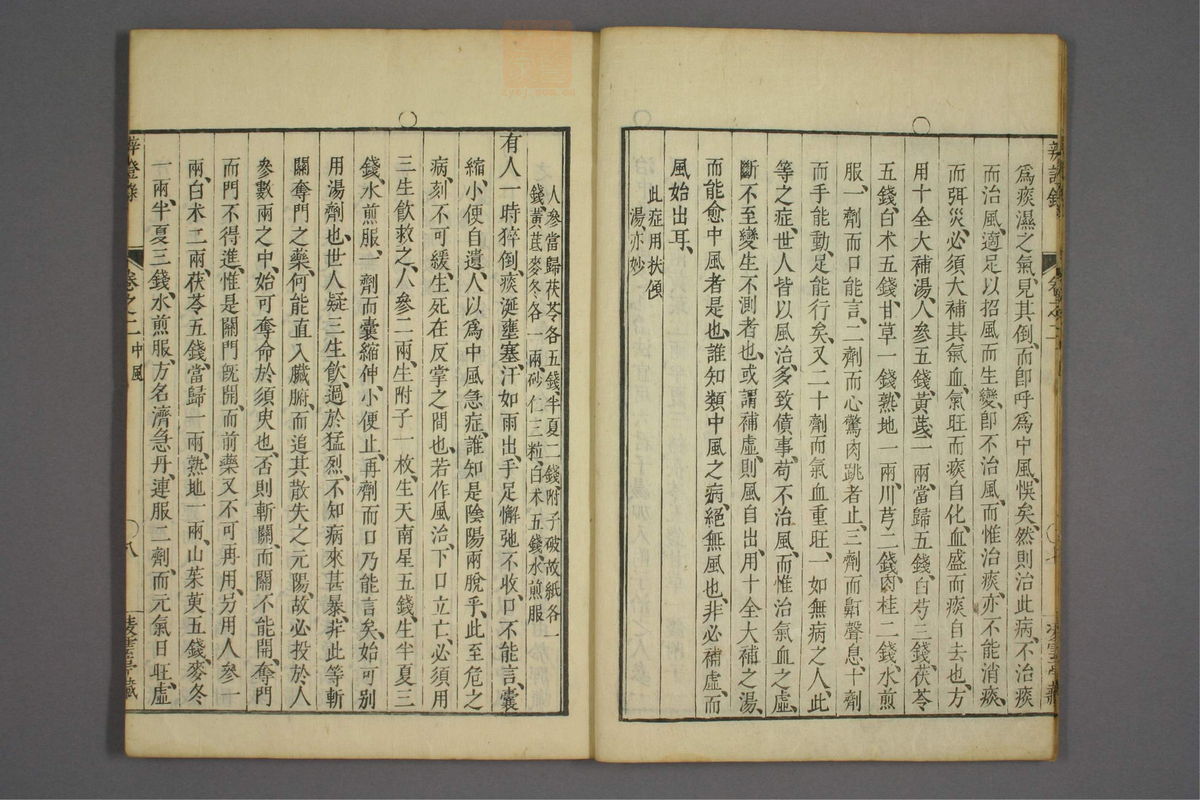 辨證錄
爲痰濕之氣、見其倒、而卽呼爲中風、悞矣、然則治此病、不治痰
而治風、適足以招風而生變、卽不治風、而惟治痰、亦不能消痰、
而弭災、必須大補其氣血、氣旺而痰自化、血盛而痰自去也、方
用十全大補湯、人參五錢、黃芪一兩、當歸五錢、白芍三錢、茯苓
五錢、白术五錢、甘草一錢、熟地一兩、川芎二錢、肉桂二錢、水煎
服、一劑而口能言、二劑而心驚肉跳者止、三劑而鼾聲息、十劑
而手能動、足能行矣、又二十劑而氣血重旺、一如無病之人、此
等之症、世人皆以風治、多致僨事、苟不治風、而惟治氣血之虛、
斷不至變生不測者也、或謂補虛、則風自出、用十全大補之湯、
而能愈中風者是也、誰知類中風之病、絕無風也、非必補虛、而
風始出耳、
此症用扶傾
湯亦妙
人參當歸茯苓各五錢半夏二錢附子破故紙各一
錢黃芪麥冬各一兩砂仁三粒白术五錢水煎服
有人一時猝倒、痰涎壅塞、汗如雨出、手足懈弛不收、口不能言、囊
縮小便自遺、人以爲中風急症、誰知是陰陽兩脫乎、此至危之
病、刻不可緩、生死在反掌之間也、若作風治、下口立亡、必須用
三生飲救之、人參二兩、生附子一枚、生天南星五錢、生半夏三
錢、水煎服、一劑而囊縮伸、小便止、再劑而口乃能言矣、始可别
用湯劑也、世人疑三生飲、過於猛烈、不知病來甚暴、非此等斬
關奪門之藥、何能直入臟腑、而追其散失之元陽、故必投於人
參數兩之中、始可奪命於須臾也、否則斬關、而關不能開、奪門
而門不得進、惟是關門旣開、而前藥又不可再用、另用人參一
兩、白术二兩、茯苓五錢、當歸一兩、熟地一兩、山茱萸五錢、麥冬
一兩、半夏三錢、水煎服、方名濟急丹、連服二劑、而元氣日旺、虛
辨證錄
卷之二
中風
八